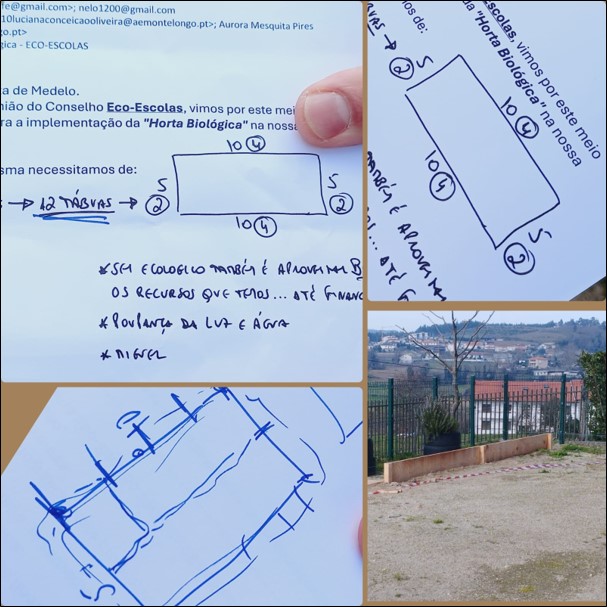 fe@gmail.com>; nelo1200@gmail.com
10lucianaconceicaooliveira@aemontelongo.pt>; Aurora Mesquita Pires
go.pt>
gica - ECO-ESCOLAS
a de Medelo.
nião do Conselho Eco-Escolas, vimos por este mei
ra a implementação da "Horta Biológica" na nossa
sma necessitamos de:
10 4
→ 12 TÁBUAS → 2 5
5 2
10 4
* SER ECOLOGICO TAMBÉM É APROVEITAR B
OS RECURSOS QUE TEMOS... ATÉ FINANC
* POUPANÇA DA LUZ E ÁGUA
* MIGUEL
scolas, vimos por este meio
da "Horta Biológica" na nossa
os de:
UAS → 2 5
10 4
10 4
5
2
TAMBÉM É APROVEITAR
... ATÉ F
5